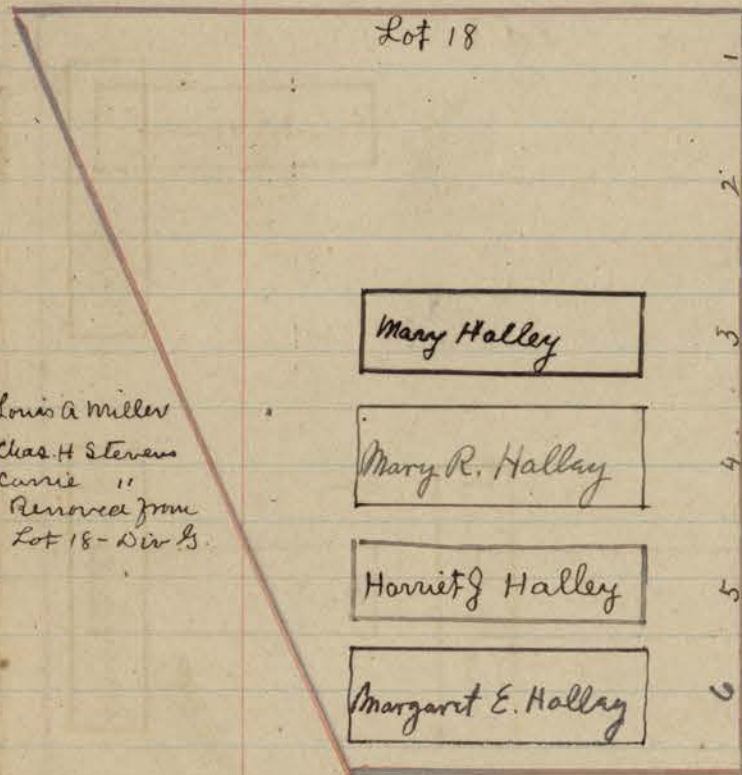 Lot 18
1
2
Mary Halley
3
Louis A Miller
Chas. H Stevens
Carrie "
Removed from
Lot 18 - Div G.
Mary R. Halley
4
Harriet J Halley
5
Margaret E. Halley
6